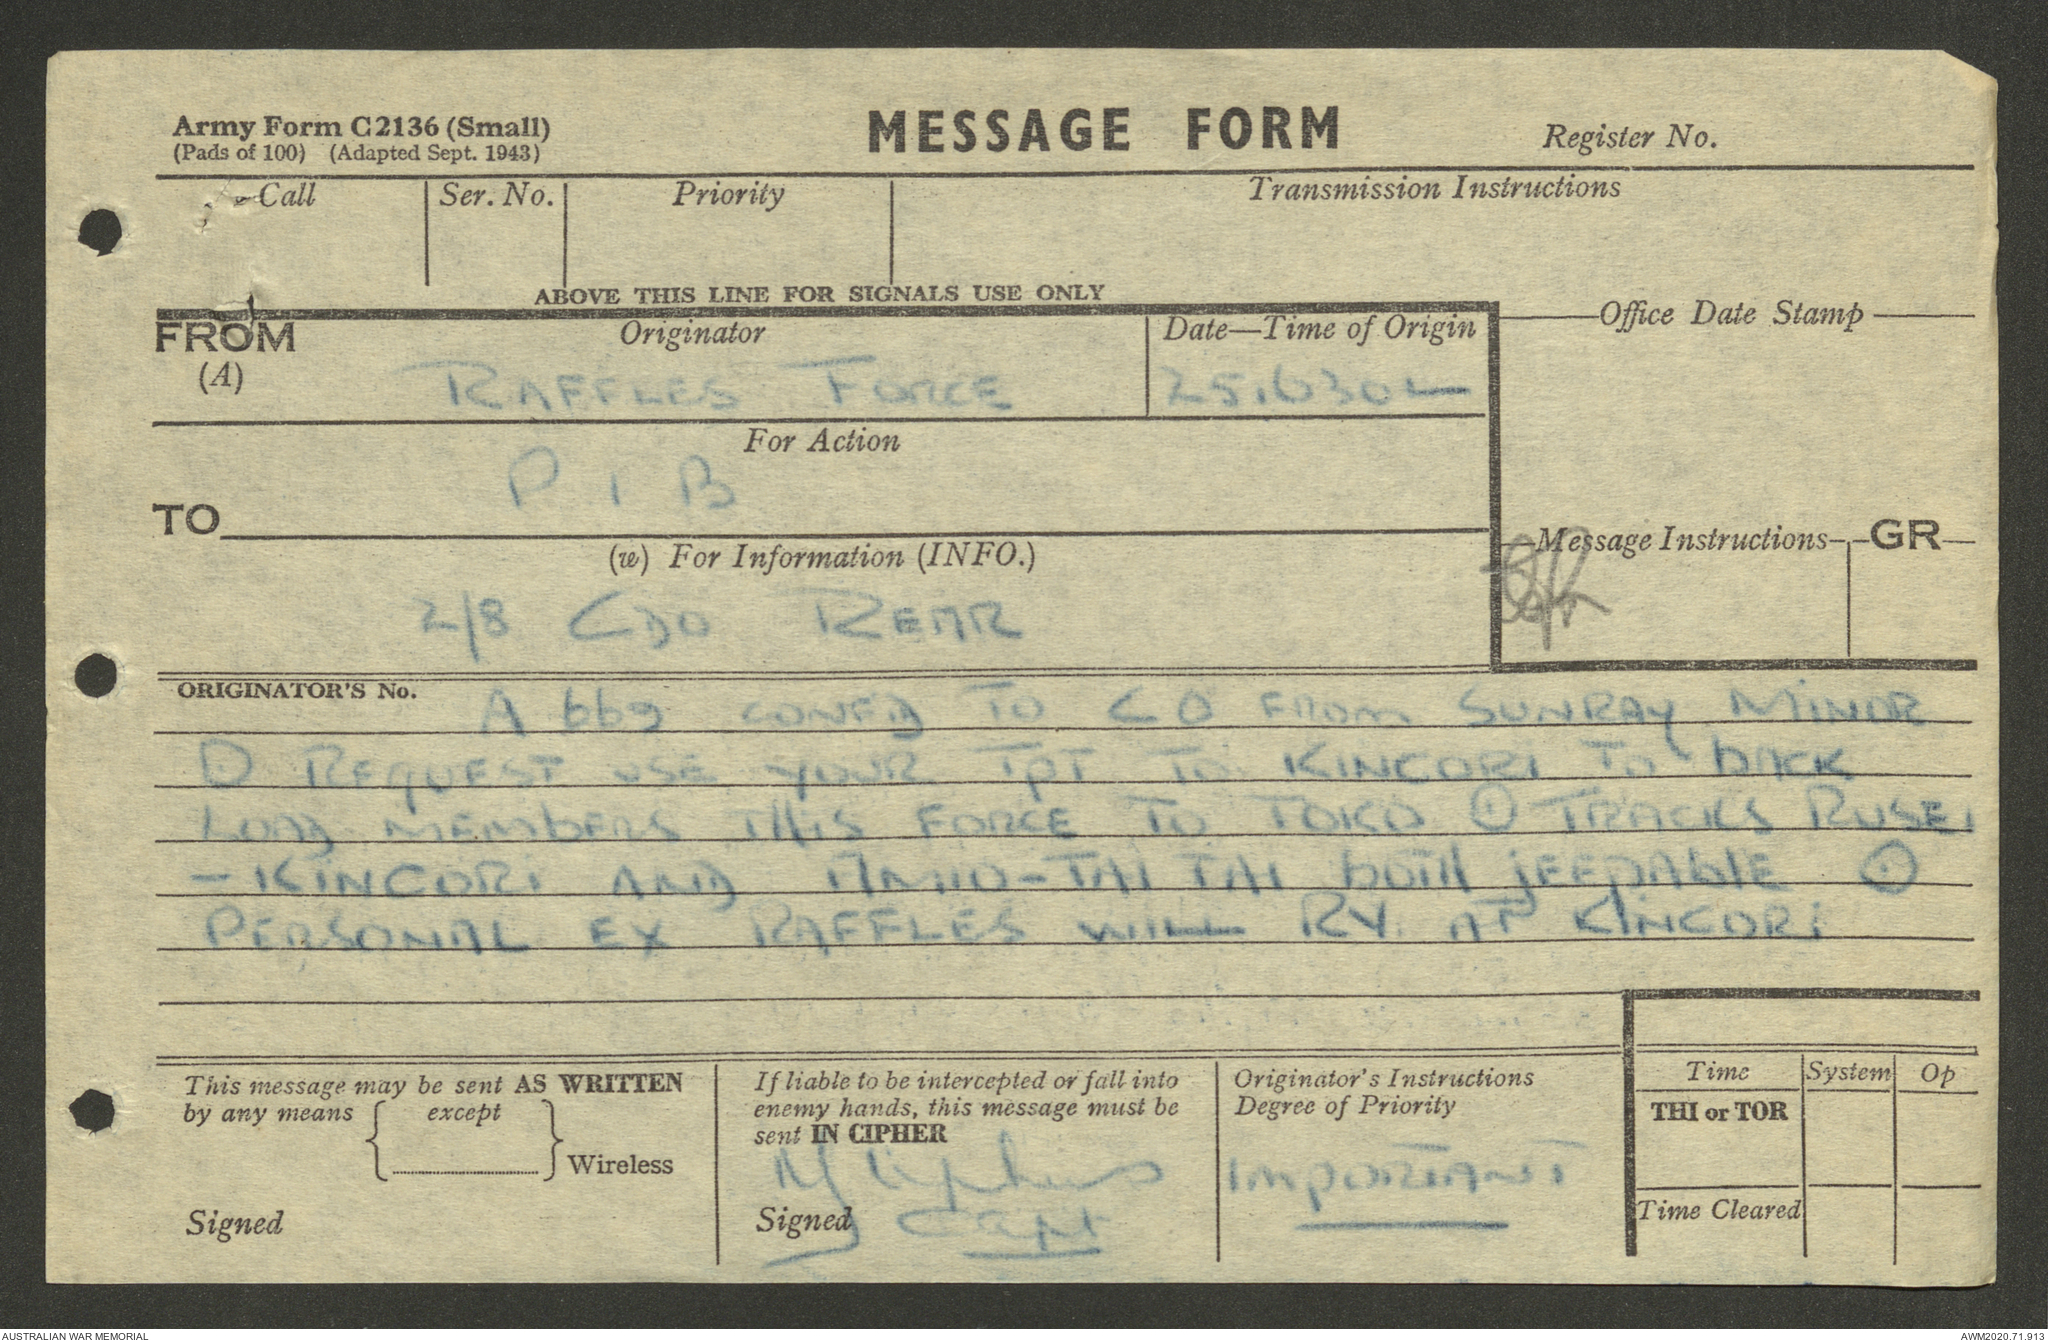 Army Form C2136 (Small)
(Pads of 100) (Adapted Sept. 1943)
MESSAGE FORM
Register No.
Call
Ser. No.
Priority
Transmission Instructions
ABOVE THIS LINE FOR SIGNALS USE ONLY
FROM
(A)
Originator
RAFFLES FORCE
Date—Time of Origin
25.0630L
Office Date Stamp
For Action
P I B
TO
(w) For Information (INFO.)
2/8 CDO REAR
Message Instructions
GR
ORIGINATOR'S No.
A 669 CONFD TO CO FROM SUNRAY MINOR
REQUEST USE YOUR TPT TO KINCORI TO BACK
LOAD MEMBERS THIS FORCE TO TOKO (.) TRACKS RUSEI
- KINCORI AND TAI TAI BOTH JEEPABLE (.)
PERSONAL EX RAFFLES WILL RV AT KINCORI
This message may be sent AS WRITTEN
by any means { except } Wireless
Signed
If liable to be intercepted or fall into
enemy hands, this message must be
sent IN CIPHER
Signed
Capt
Originator's Instructions
Degree of Priority
IMPORTANT
Time
System
Op
THI or TOR
Time Cleared
AUSTRALIAN WAR MEMORIAL
AWM2020.71.913